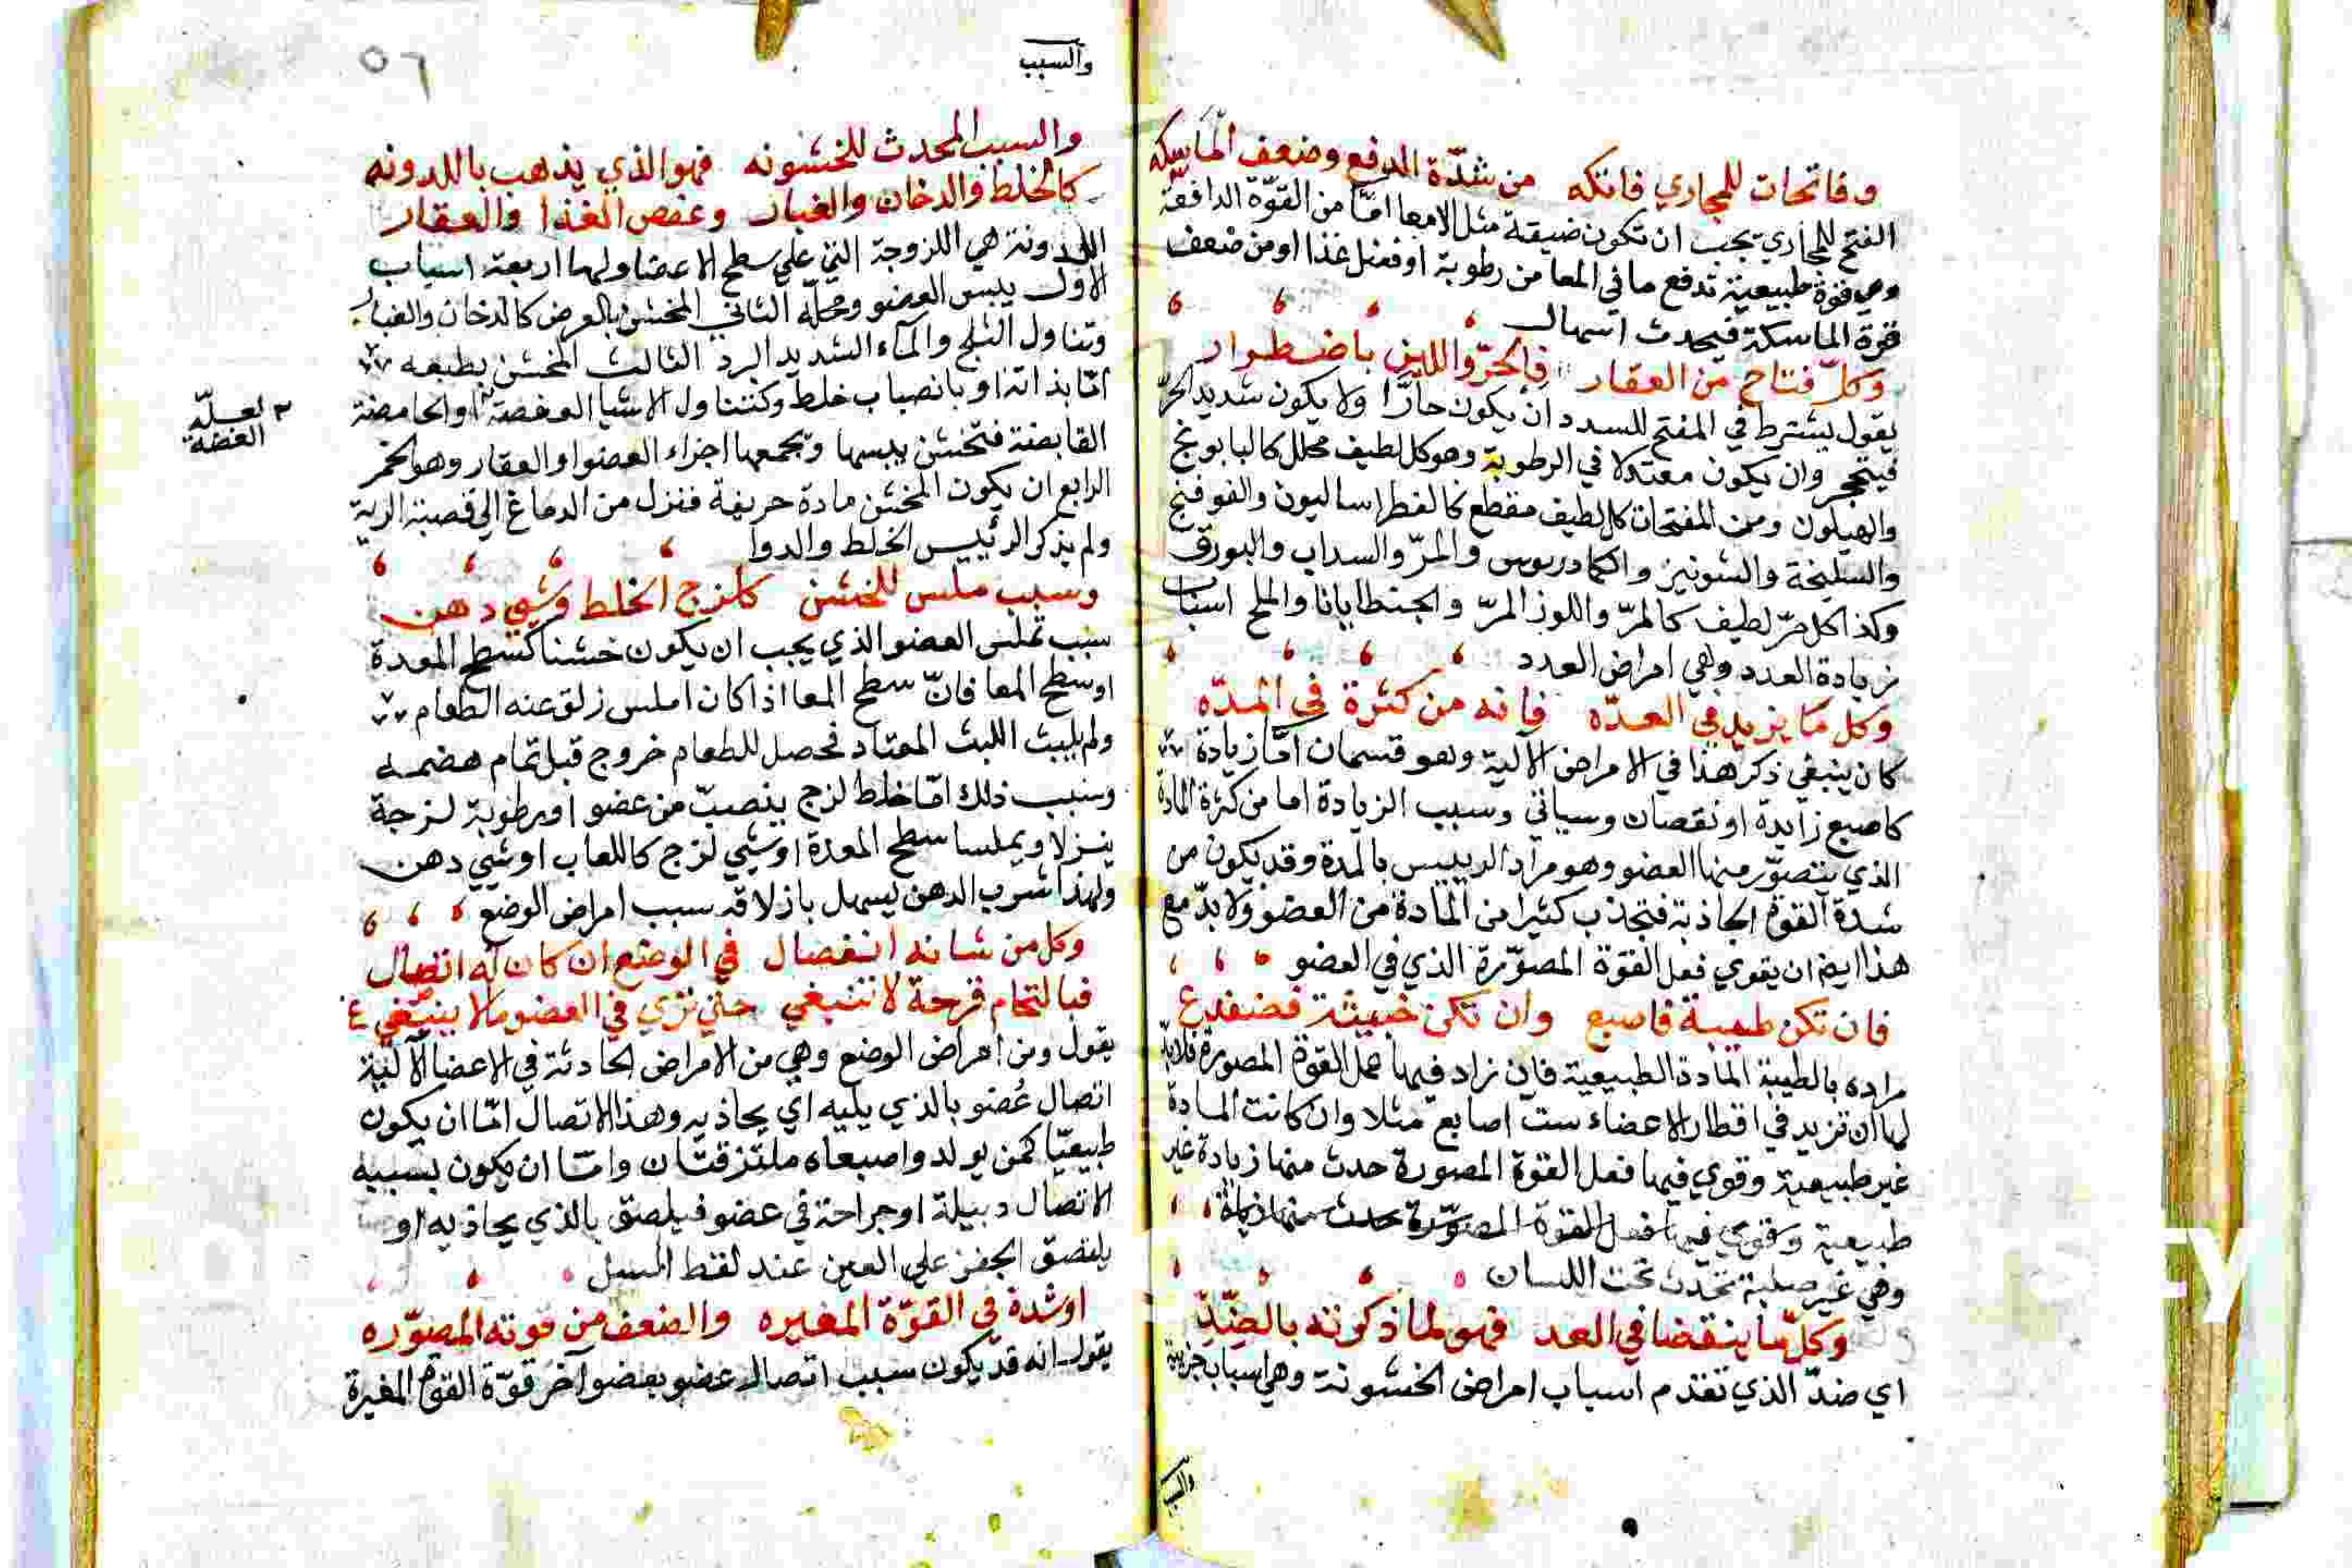 وفاتحات للمجاري فاتكه من شدّة الدفع وضعف الماسكه
الفتح للمجاري يجب ان تكون ضيقة مثل الامعا امّا من القوّة الدافعة
وهي قوة طبيعية تدفع ما في المعا من رطوبة او فضل غذا او من ضعف
قوة الماسكة فيحدث اسهال
وكلّ فتاح من العقار فالحرّ واللين باضطرار
يقول يشترط في المفتح للسدد ان يكون حارّا ولا يكون شديد الحرّ
فيتحجر وان يكون معتدلا في الرطوبة وهو كل لطيف محلل كالبابونج
والهيلون ومن المفتحات كل لطيف مقطع كالفطراساليون والفوفنج
والسليخة والشونيز والكمادريوس والمرّ والسداب والبورق
وكذا كل مرّ لطيف كالمرّ واللوز المرّ والجنطايانا والملح اسباب
زيادة العدد وهي امراض العدد
وكل ما يزيد في العدّه فانه من كثرة في المدّه
كان ينبغي ذكر هذا في الامراض الآلية وهو قسمان امّا زيادة
كاصبع زايدة او نقصان وسياتي وسبب الزيادة اما من كثرة المادة
الذي يتصوّر منها العضو وهو مراد الرييس بالمدة وقد يكون من
شدة القوة الجاذبة فتجذب كثيرا من المادة من العضو ولا بدّ مع
هذا ايضا ان يقوي فعل القوة المصوّرة الذي في العضو
فان تكن طيبة فاصبع وان تكن خبيثة فضفدع
مراده بالطيبة المادة الطبيعية فان زاد فيها عمل القوة المصورة فلابد
لها ان تزيد في اقطار الاعضاء ست اصابع مثلا وان كانت المادة
غير طبيعية وقوي فيها فعل القوة المصورة حدث منها زيادة غير
طبيعية وقوي فيها فعل القوة المصوّرة حدث منها زيادة
وهي غير صلبة تحدث تحت اللسان
وكلّ ما ينقضا في العد فهو لما ذكرته بالضّدِّ
اي ضدّ الذي تقدم اسباب امراض الخشونة وهي اسباب جزية
والسبب
٥٦
والسبب المحدث للخشونه فهو الذي يذهب باللدونه
كالخلط والدخان والغبار وعفص الغذا والعقار
اللدونة هي اللزوجة التي على سطح الاعضا ولها اربعة اسباب
الاول يبس العضو ومحلّه الثاني المخشن بالعرض كالدخان والغبار
وتناول الثلج والمآء الشديد البرد الثالث المخشن بطبعه
امّا بذاته او بانصباب خلط وكتناول الاشيا العفصة او الحامضة
القابضة فتخشن بيبسها وتجمعها اجزاء العضو او العقار وهو الخمر
الرابع ان يكون المخشن مادة حريفة فنزل من الدماغ الي قصبة الرية
ولم يذكر الرئيس الخلط والدوا
وسبب ملس للخشن كالزج الخلط وشي دهن
سبب تملس العضو الذي يجب ان يكون خشنا كسطح المعدة
او سطح المعا فانّ سطح المعا اذا كان املس زلق عنه الطعام
ولم يلبث اللبث المعتاد فحصل للطعام خروج قبل تمام هضمه
وسبب ذلك امّا خلط لزج ينصبّ من عضو او رطوبة لزجة
ينزلا ويملسا سطح المعدة او شي لزج كاللعاب او شي دهن
ولهذا شرب الدهن ليسهل بازلاقه سبب امراض الوضع
وكل من شانه انفصال في الوضع ان كان له اتصال
فبالتحام قرحة لا تنبغي حتي تري في العضو ما لا ينبغي
يقول ومن امراض الوضع وهي من الامراض الحادثة في الاعضا الآلية
اتصال عُضو بالذي يليه اي يحاذيه وهذا الاتصال امّا ان يكون
طبيعيّا كمن يولد واصبعاه ملتزقتان وامّا ان يكون بسببه
الاتصال دبيلة او جراحة في عضو فيلصق بالذي يحاذيه او
يلتصق الجفن على العين عند لقط السبل
او شدة في القوّة المغيره والضعف من قوته المصوّره
يقول انه قد يكون سبب اتصال عضو بعضو آخر قوّة القوة المغيرة
لعلّه
العفصة